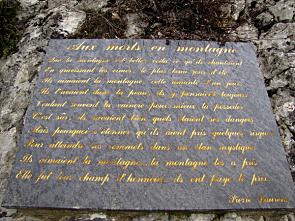 Aux morts en montagne
Que la montagne est belle, voilà ce qu'ils chantaient
En gravissant les cimes, le plus haut, jour et
Ils aimaient la montagne, cette amante d'un jour
Ils l'avaient dans la peau, ils y pensaient toujours
Voulant souvent la vaincre pour mieux la posséder
C'est sûr ils savaient bien quels étaient ses dangers
Mais pourquoi s'étonner qu'ils aient pris quelques risques
Pour atteindre ses sommets dans un élan mystique
Ils aimaient la montagne, la montagne les a pris
Elle fut leur champ d'honneur, ils ont payé le prix
Pierre